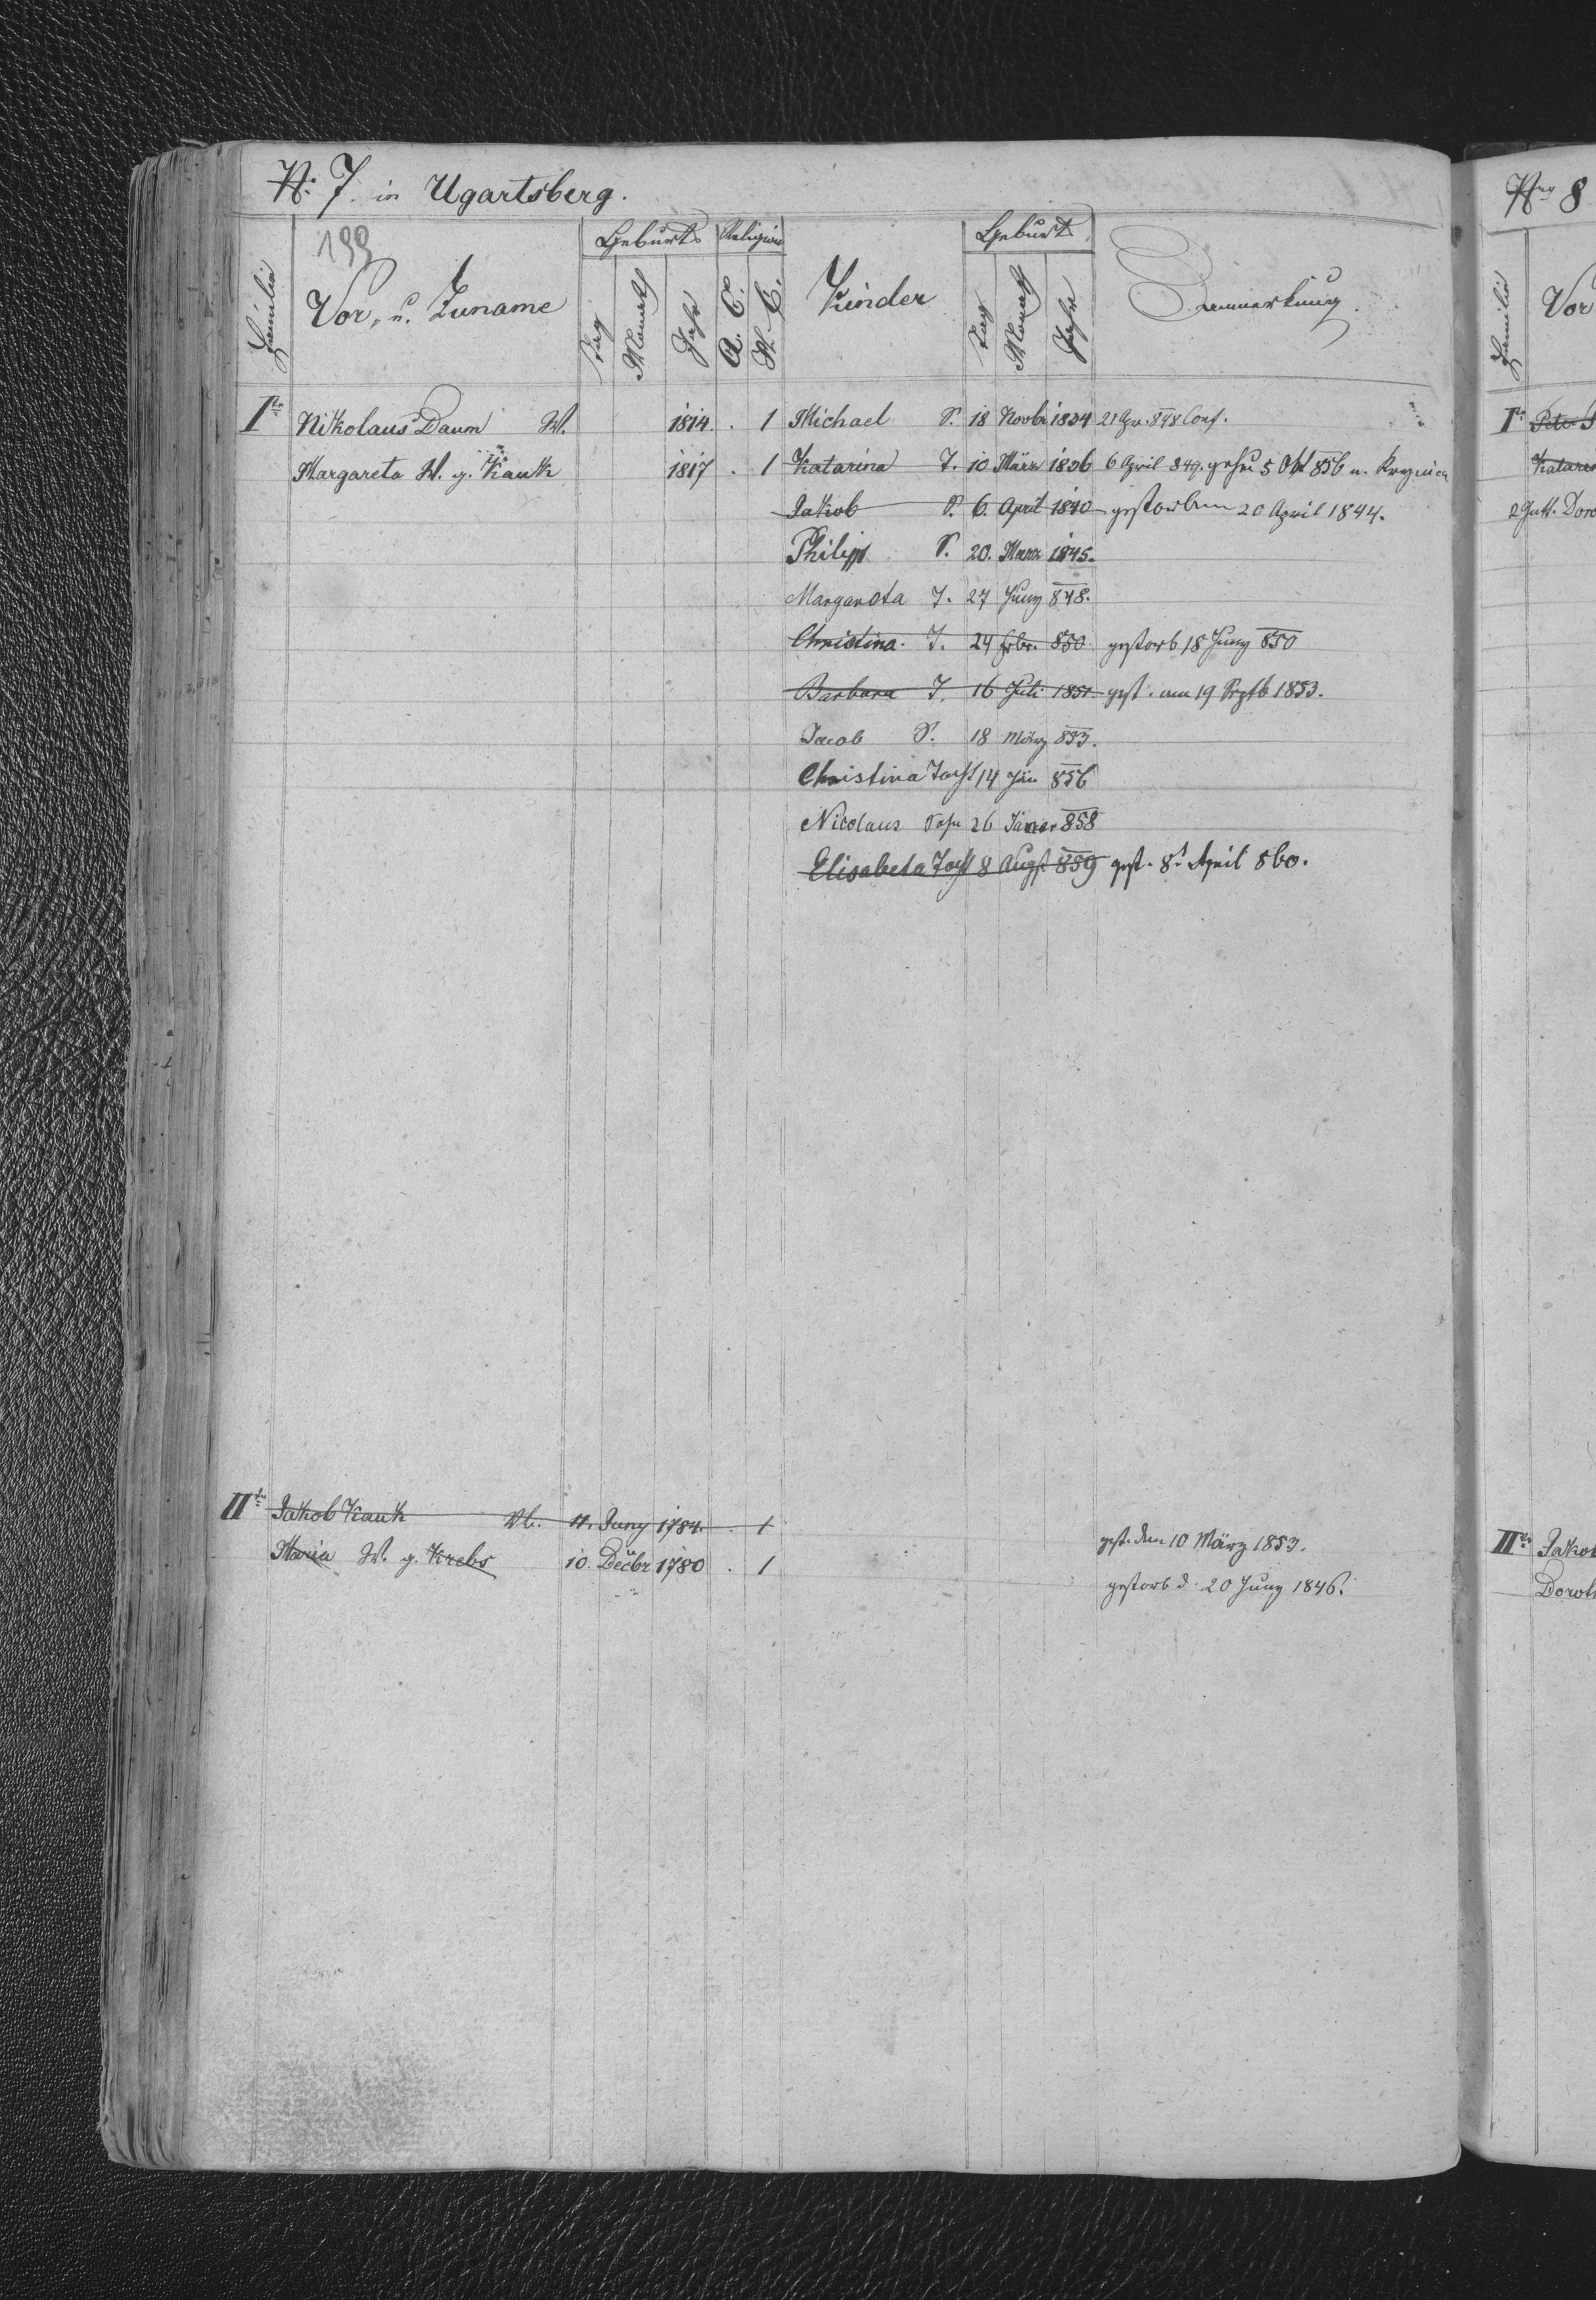 N: 7. in Ugartsberg.
199
Familie Vor, u. Zuname Geburts Tag Monath Jahr Religion A. C. H. C. Kinder Geburt Tag Monath Jahr Anmerkung
I te Nikolaus Daum W. 1814. . 1 Michael S. 18 Novbr 1834 21 Apr. 848 Conf.
Margareta W. g. Kauk 1817 . 1 Katarina T. 10 März 1836 6 April 849. 5 Okt 856 n.
Jakob S. 6. April 1840 gestorben 20 April 1844.
Philipp S. 20. März 1845.
Margareta T. 27 Juny 848.
Christina T. 24 Febr. 850 gestorb 18 Juny 850
Barbara T. 16 Juli 1851. gest. am 19 Septb 1853.
Jacob S. 18 März 853.
Christina Tocht 14 Jän 856
Nicolaus Sohn 26 Jäner 858
Elisabeta Tocht 8 Augst 859 gest. 8t April 860.
II te Jakob Kauk W. 11. Juny 1784. . 1 gest. den 10 März 1853.
Maria W. g. Krebs 10. Decbr 1780 . 1 gestorb d. 20 Juny 1846.
Nro 8
Familie Vor
I te Peter
Katarina
2 Gatt. Doro
II te Jakob
Doroth